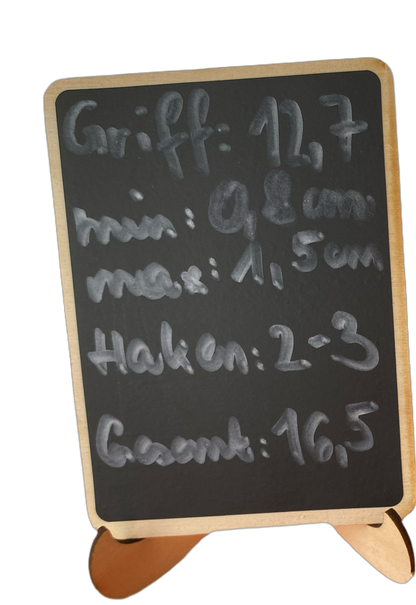 Griff: 12,7
min: 0,8 cm
max: 1,5 cm
Haken: 2-3
Gesamt: 16,5